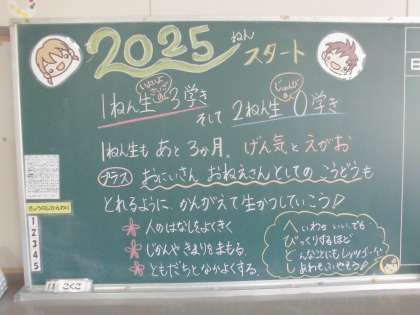 2025ねん スタート
いよいよ さいごの
じゅんびの
1ねん生 3学き そして 2ねん生 0学き
1ねん生も あと 3か月。 げん気と えがお
プラス おにいさん おねえさんとしての こうどうも
とれるように かんがえて 生かつしていこう♪
人の はなしを よくきく
じかんや きまりを まもる
ともだちと なかよくする。
へいわも いい。でも
びっくりするほど
どんなことにも レッツゴー!
しあわせ ふやそう♪
きょうの じかんわり
1
2
3
4
5
こくご